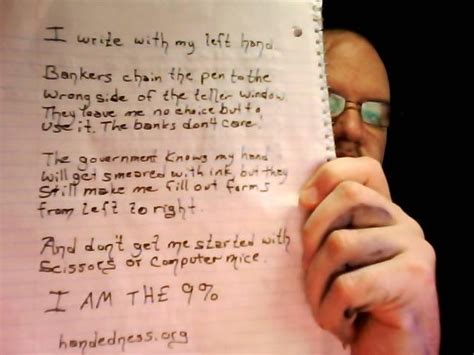 I write with my left hand.
Bankers chain the pen to the
wrong side of the teller window.
They leave me no choice but to
use it. The banks don't care!
The government knows my hand
will get smeared with ink, but they
still make me fill out forms
from left to right.
And don't get me started with
scissors or computer mice.
I AM THE 9%
handedness.org